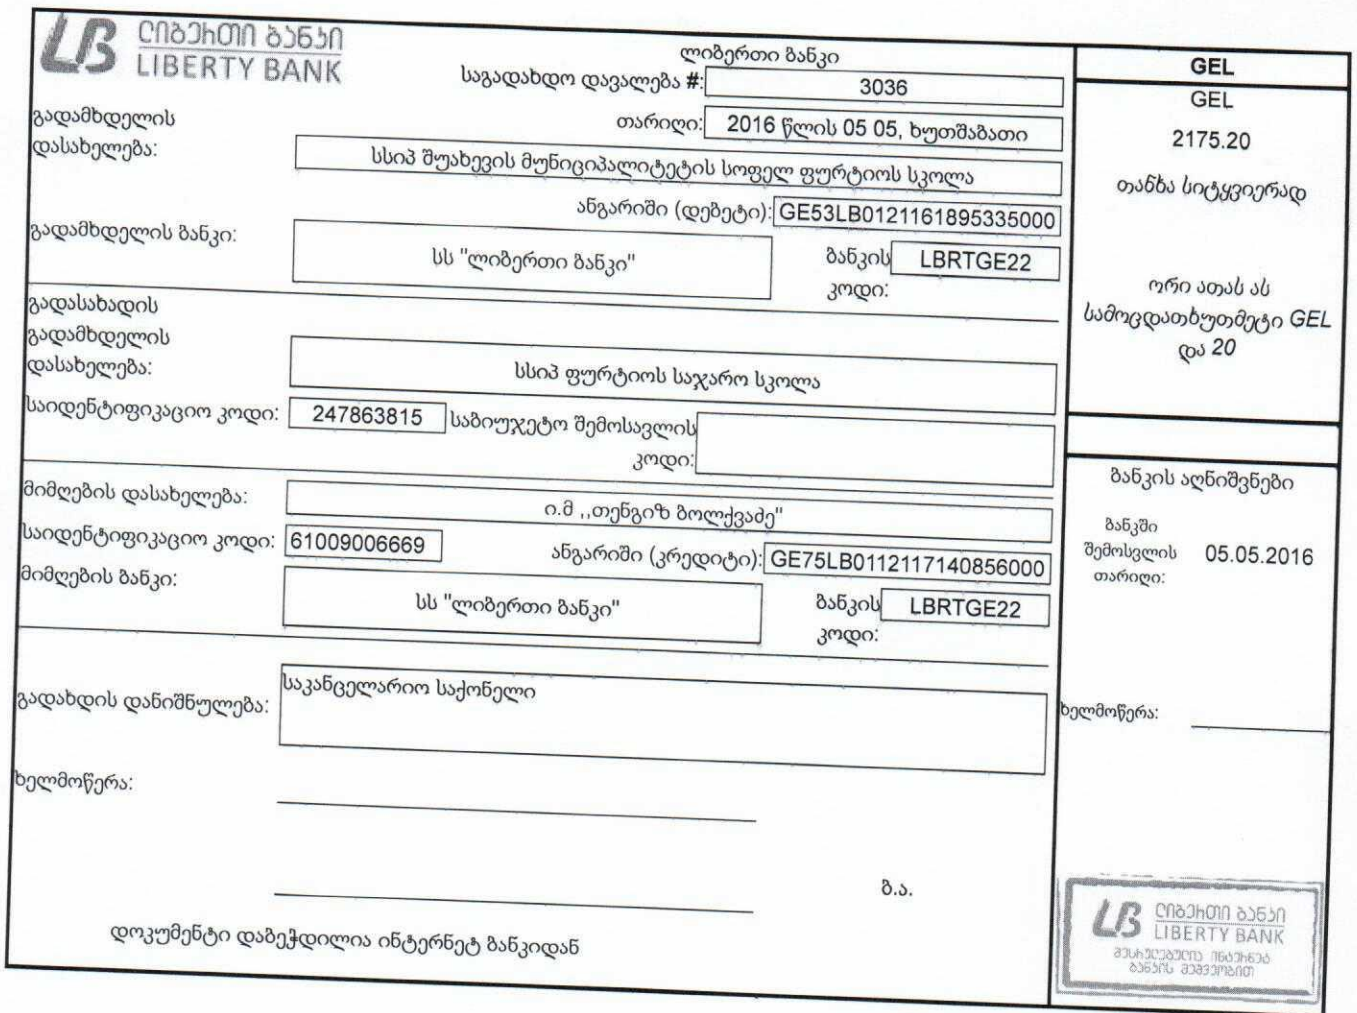 ლიბერთი ბანკი
LIBERTY BANK
ლიბერთი ბანკი
საგადახდო დავალება #: 3036
თარიღი: 2016 წლის 05 05, ხუთშაბათი
გადამხდელის
დასახელება: სსიპ შუახევის მუნიციპალიტეტის სოფელ ფურტიოს სკოლა
ანგარიში (დებეტი): GE53LB0121161895335000
გადამხდელის ბანკი: სს "ლიბერთი ბანკი" ბანკის
კოდი: LBRTGE22
გადასახადის
გადამხდელის
დასახელება: სსიპ ფურტიოს საჯარო სკოლა
საიდენტიფიკაციო კოდი: 247863815 საბიუჯეტო შემოსავლის
კოდი:
მიმღების დასახელება: ი.მ ,,თენგიზ ბოლქვაძე"
საიდენტიფიკაციო კოდი: 61009006669 ანგარიში (კრედიტი): GE75LB0112117140856000
მიმღების ბანკი: სს "ლიბერთი ბანკი" ბანკის
კოდი: LBRTGE22
გადახდის დანიშნულება: საკანცელარიო საქონელი
ხელმოწერა:
ბ.ა.
დოკუმენტი დაბეჭდილია ინტერნეტ ბანკიდან
GEL
GEL
2175.20
თანხა სიტყვიერად
ორი ათას ას
სამოცდათხუთმეტი GEL
და 20
ბანკის აღნიშვნები
ბანკში
შემოსვლის 05.05.2016
თარიღი:
ხელმოწერა:
ლიბერთი ბანკი
LIBERTY BANK
შესრულებულია ინტერნეტ
ბანკის მეშვეობით